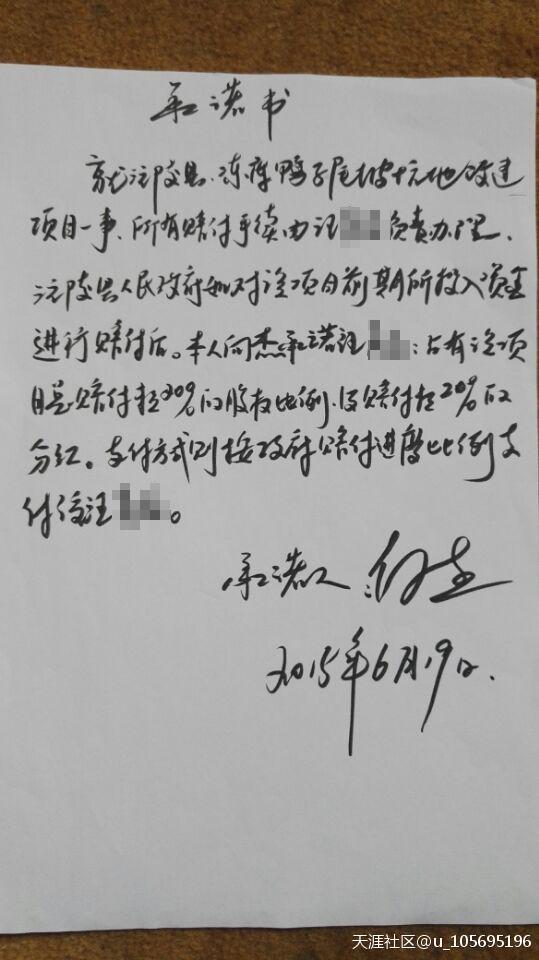 承诺书
就沅陵县
项目一事、所有赔付手续由汪 负责办理、
沅陵县人民政府如对该项目前期所投入资金
进行赔付后。本人向杰承诺汪 :占有该项
目总赔付款20%的股权比例、及赔付款20%的
分红。支付方式则按政府赔付进度比例支
付给汪 。
承诺人:向杰
2015年6月19日.
天涯社区@u_105695196